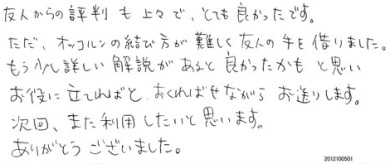 友人からの評判も上々で、とても良かったです。
ただ、オッコルンの結び方が難しく友人の手を借りました。
もう少し詳しい解説があると良かったかもと思い
お役に立てればと、おくればせながらお送りします。
次回、また利用したいと思います。
ありがとうございました。
2012100501